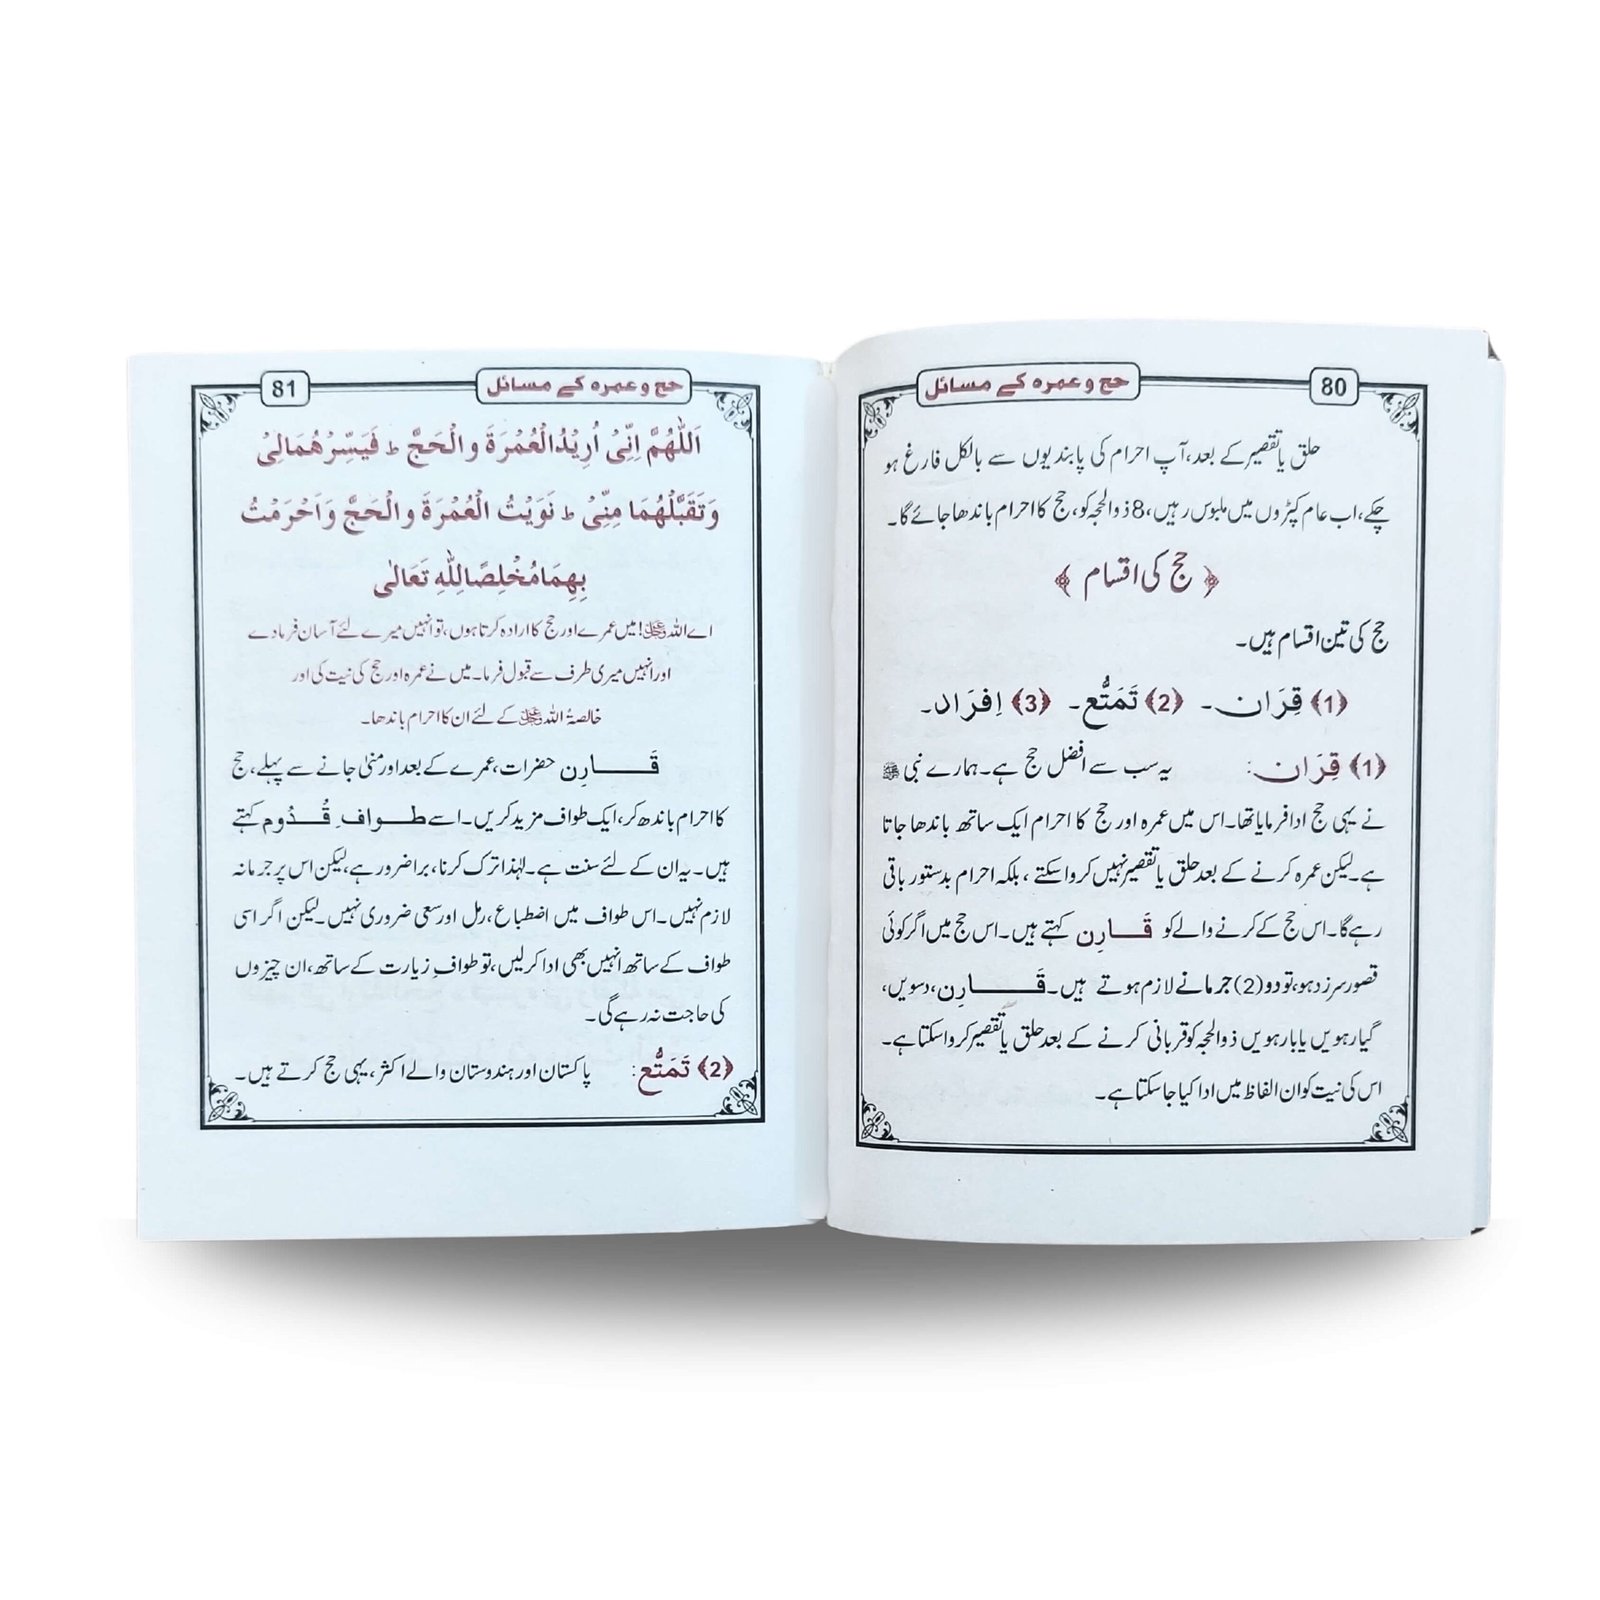 80
حج و عمرہ کے مسائل
حلق یا تقصیر کے بعد، آپ احرام کی پابندیوں سے بالکل فارغ ہو
چکے، اب عام کپڑوں میں ملبوس رہیں، 8 ذوالحجہ کو، حج کا احرام باندھا جائے گا۔
﴿ حج کی اقسام ﴾
حج کی تین اقسام ہیں۔
﴿1﴾ قِرَان۔ ﴿2﴾ تَمَتُّع۔ ﴿3﴾ اِفرَاد۔
﴿1﴾ قِرَان: یہ سب سے افضل حج ہے۔ ہمارے نبی ﷺ
نے یہی حج ادا فرمایا تھا۔ اس میں عمرہ اور حج کا احرام ایک ساتھ باندھا جاتا
ہے۔ لیکن عمرہ کرنے کے بعد حلق یا تقصیر نہیں کرواسکتے، بلکہ احرام بدستور باقی
رہے گا۔ اس حج کے کرنے والے کو قَارِن کہتے ہیں۔ اس حج میں اگر کوئی
قصور سرزد ہو، تو دو (2) جرمانے لازم ہوتے ہیں۔ قَارِن، دسویں،
گیارہویں یا بارہویں ذوالحجہ کو قربانی کرنے کے بعد حلق یا تقصیر کرواسکتا ہے۔
اس کی نیت کو ان الفاظ میں ادا کیا جاسکتا ہے۔
حج و عمرہ کے مسائل
81
اَللّٰهُمَّ اِنِّىْ اُرِيْدُ الْعُمْرَةَ وَالْحَجَّ ط فَيَسِّرْهُمَالِىْ
وَتَقَبَّلْهُمَا مِنِّىْ ط نَوَيْتُ الْعُمْرَةَ وَالْحَجَّ وَاَحْرَمْتُ
بِهِمَا مُخْلِصًا لِلّٰهِ تَعَالٰى
اے اللہ عزوجل! میں عمرے اور حج کا ارادہ کرتا ہوں، تو انہیں میرے لئے آسان فرمادے
اور انہیں میری طرف سے قبول فرما۔ میں نے عمرہ اور حج کی نیت کی اور
خالصۃً اللہ عزوجل کے لئے ان کا احرام باندھا۔
قَارِن حضرات، عمرے کے بعد اور منیٰ جانے سے پہلے، حج
کا احرام باندھ کر، ایک طواف مزید کریں۔ اسے طوافِ قُدُوم کہتے
ہیں۔ یہ ان کے لئے سنت ہے۔ لہٰذا ترک کرنا، برا ضرور ہے، لیکن اس پر جرمانہ
لازم نہیں۔ اس طواف میں اضطباع، رمل اور سعی ضروری نہیں۔ لیکن اگر اسی
طواف کے ساتھ انہیں بھی ادا کرلیں، تو طوافِ زیارت کے ساتھ، ان چیزوں
کی حاجت نہ رہے گی۔
﴿2﴾ تَمَتُّع: پاکستان اور ہندوستان والے اکثر، یہی حج کرتے ہیں۔